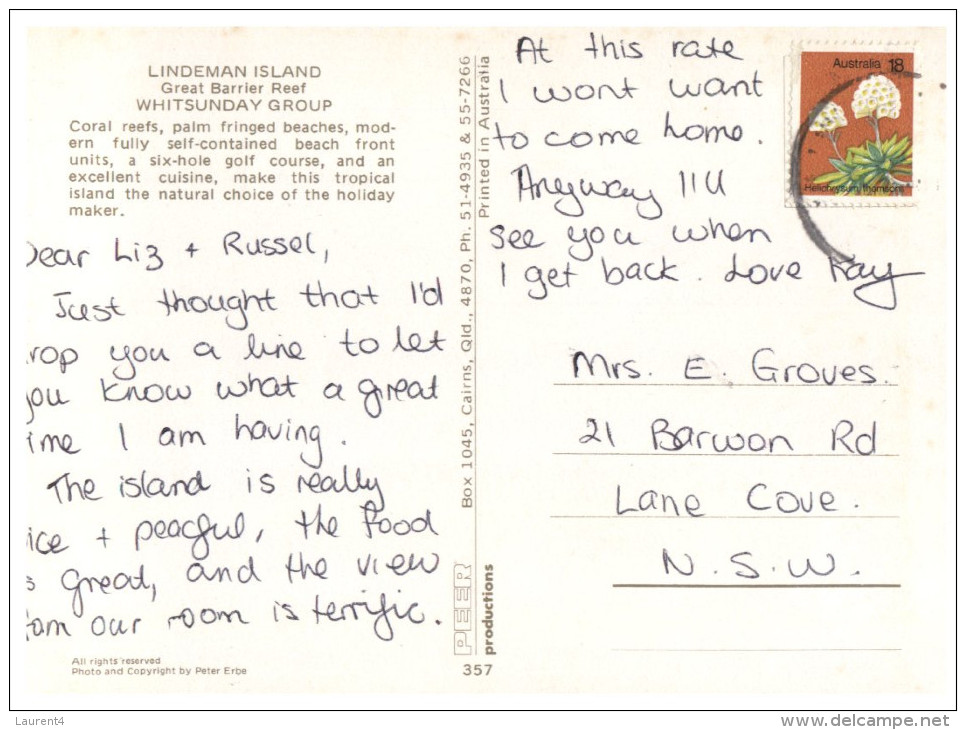 LINDEMAN ISLAND
Great Barrier Reef
WHITSUNDAY GROUP
Coral reefs, palm fringed beaches, mod-
ern fully self-contained beach front
units, a six-hole golf course, and an
excellent cuisine, make this tropical
island the natural choice of the holiday
maker.
Dear Liz + Russel,
Just thought that I'd
rop you a line to let
you know what a great
ime I am having.
The island is really
ice + peacful, the food
s great, and the view
from our room is terrific.
At this rate
I wont want
to come home.
Anyway I'll
see you when
I get back. Love Kay
Australia 18
Helichrysum thomsonii
Mrs. E. Groves.
21 Barwon Rd
Lane Cove.
N.S.W.
Box 1045, Cairns, Qld., 4870, Ph. 51-4935 & 55-7266
Printed in Australia
PEER
productions
357
All rights reserved
Photo and Copyright by Peter Erbe
Laurent4
www.delcampe.net